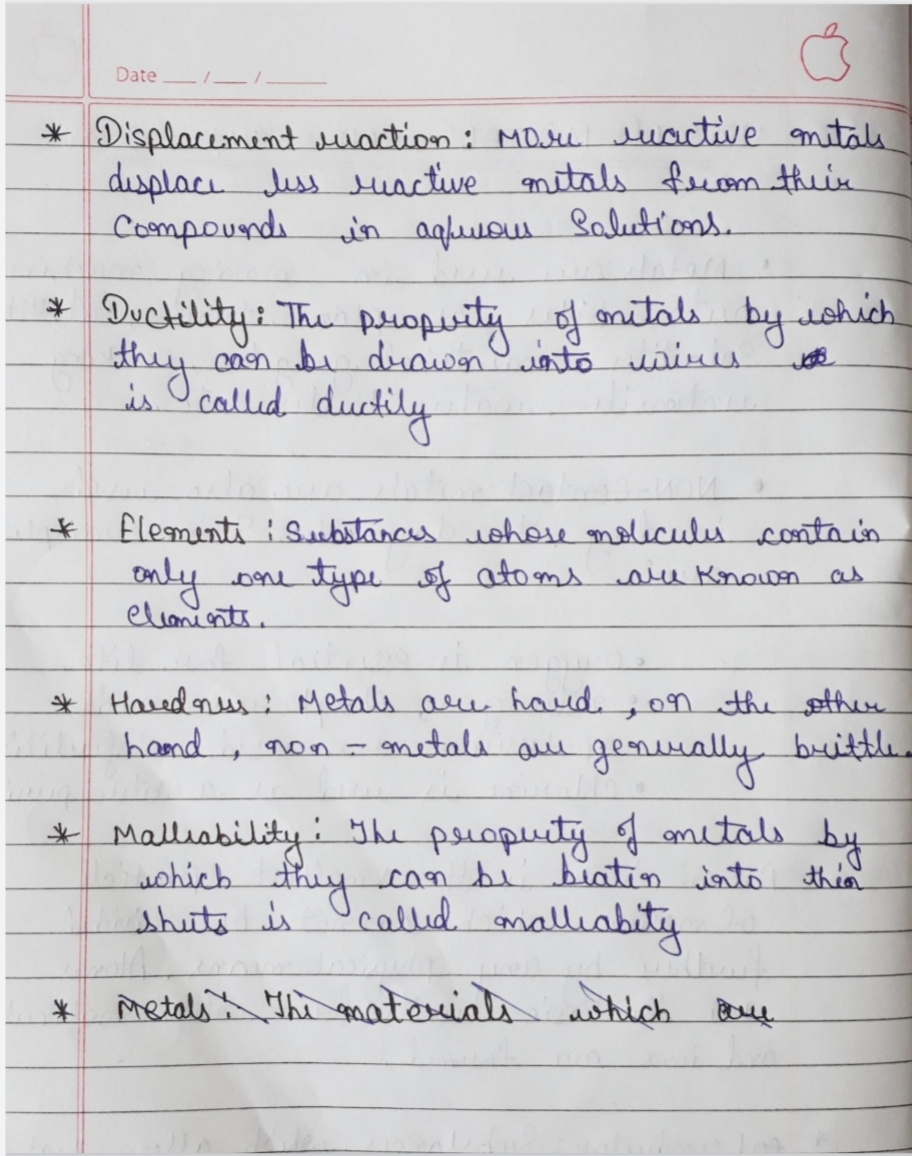 Date __/__/____
* Displacement reaction : More reactive metals
displace less reactive metals from their
Compounds in aqueous Solutions.
* Ductility : The property of metals by which
they can be drawn into wires
is called ductily
* Elements : Substances whose molecules contain
only one type of atoms are known as
elements.
* Hardness : Metals are hard. , on the other
hand , non - metals are generally brittle.
* Malleability : The property of metals by
which they can be beaten into thin
sheets is called malleabity
* Metals : The materials which are